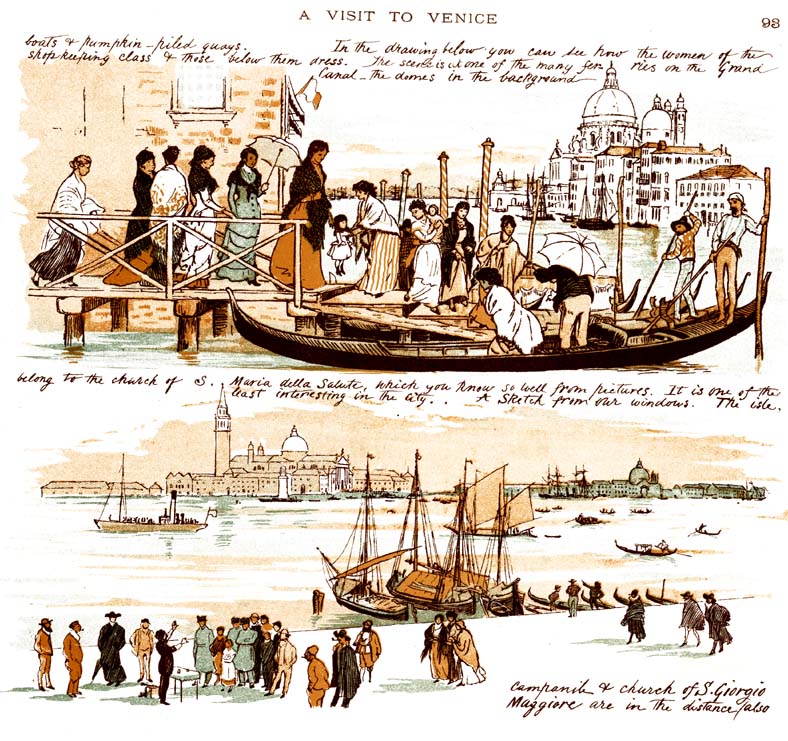 A VISIT TO VENICE
93
boats & pumpkin-piled quays. In the drawing below you can see how the women of the
shopkeeping class & those below them dress. The scene is at one of the many fer ries on the Grand
Canal - the domes in the background
belong to the church of S. Maria della Salute, which you know so well from pictures. It is one of the
least interesting in the city.. A sketch from our windows. The isle,
Campanile & church of S. Giorgio
Maggiore are in the distance, also